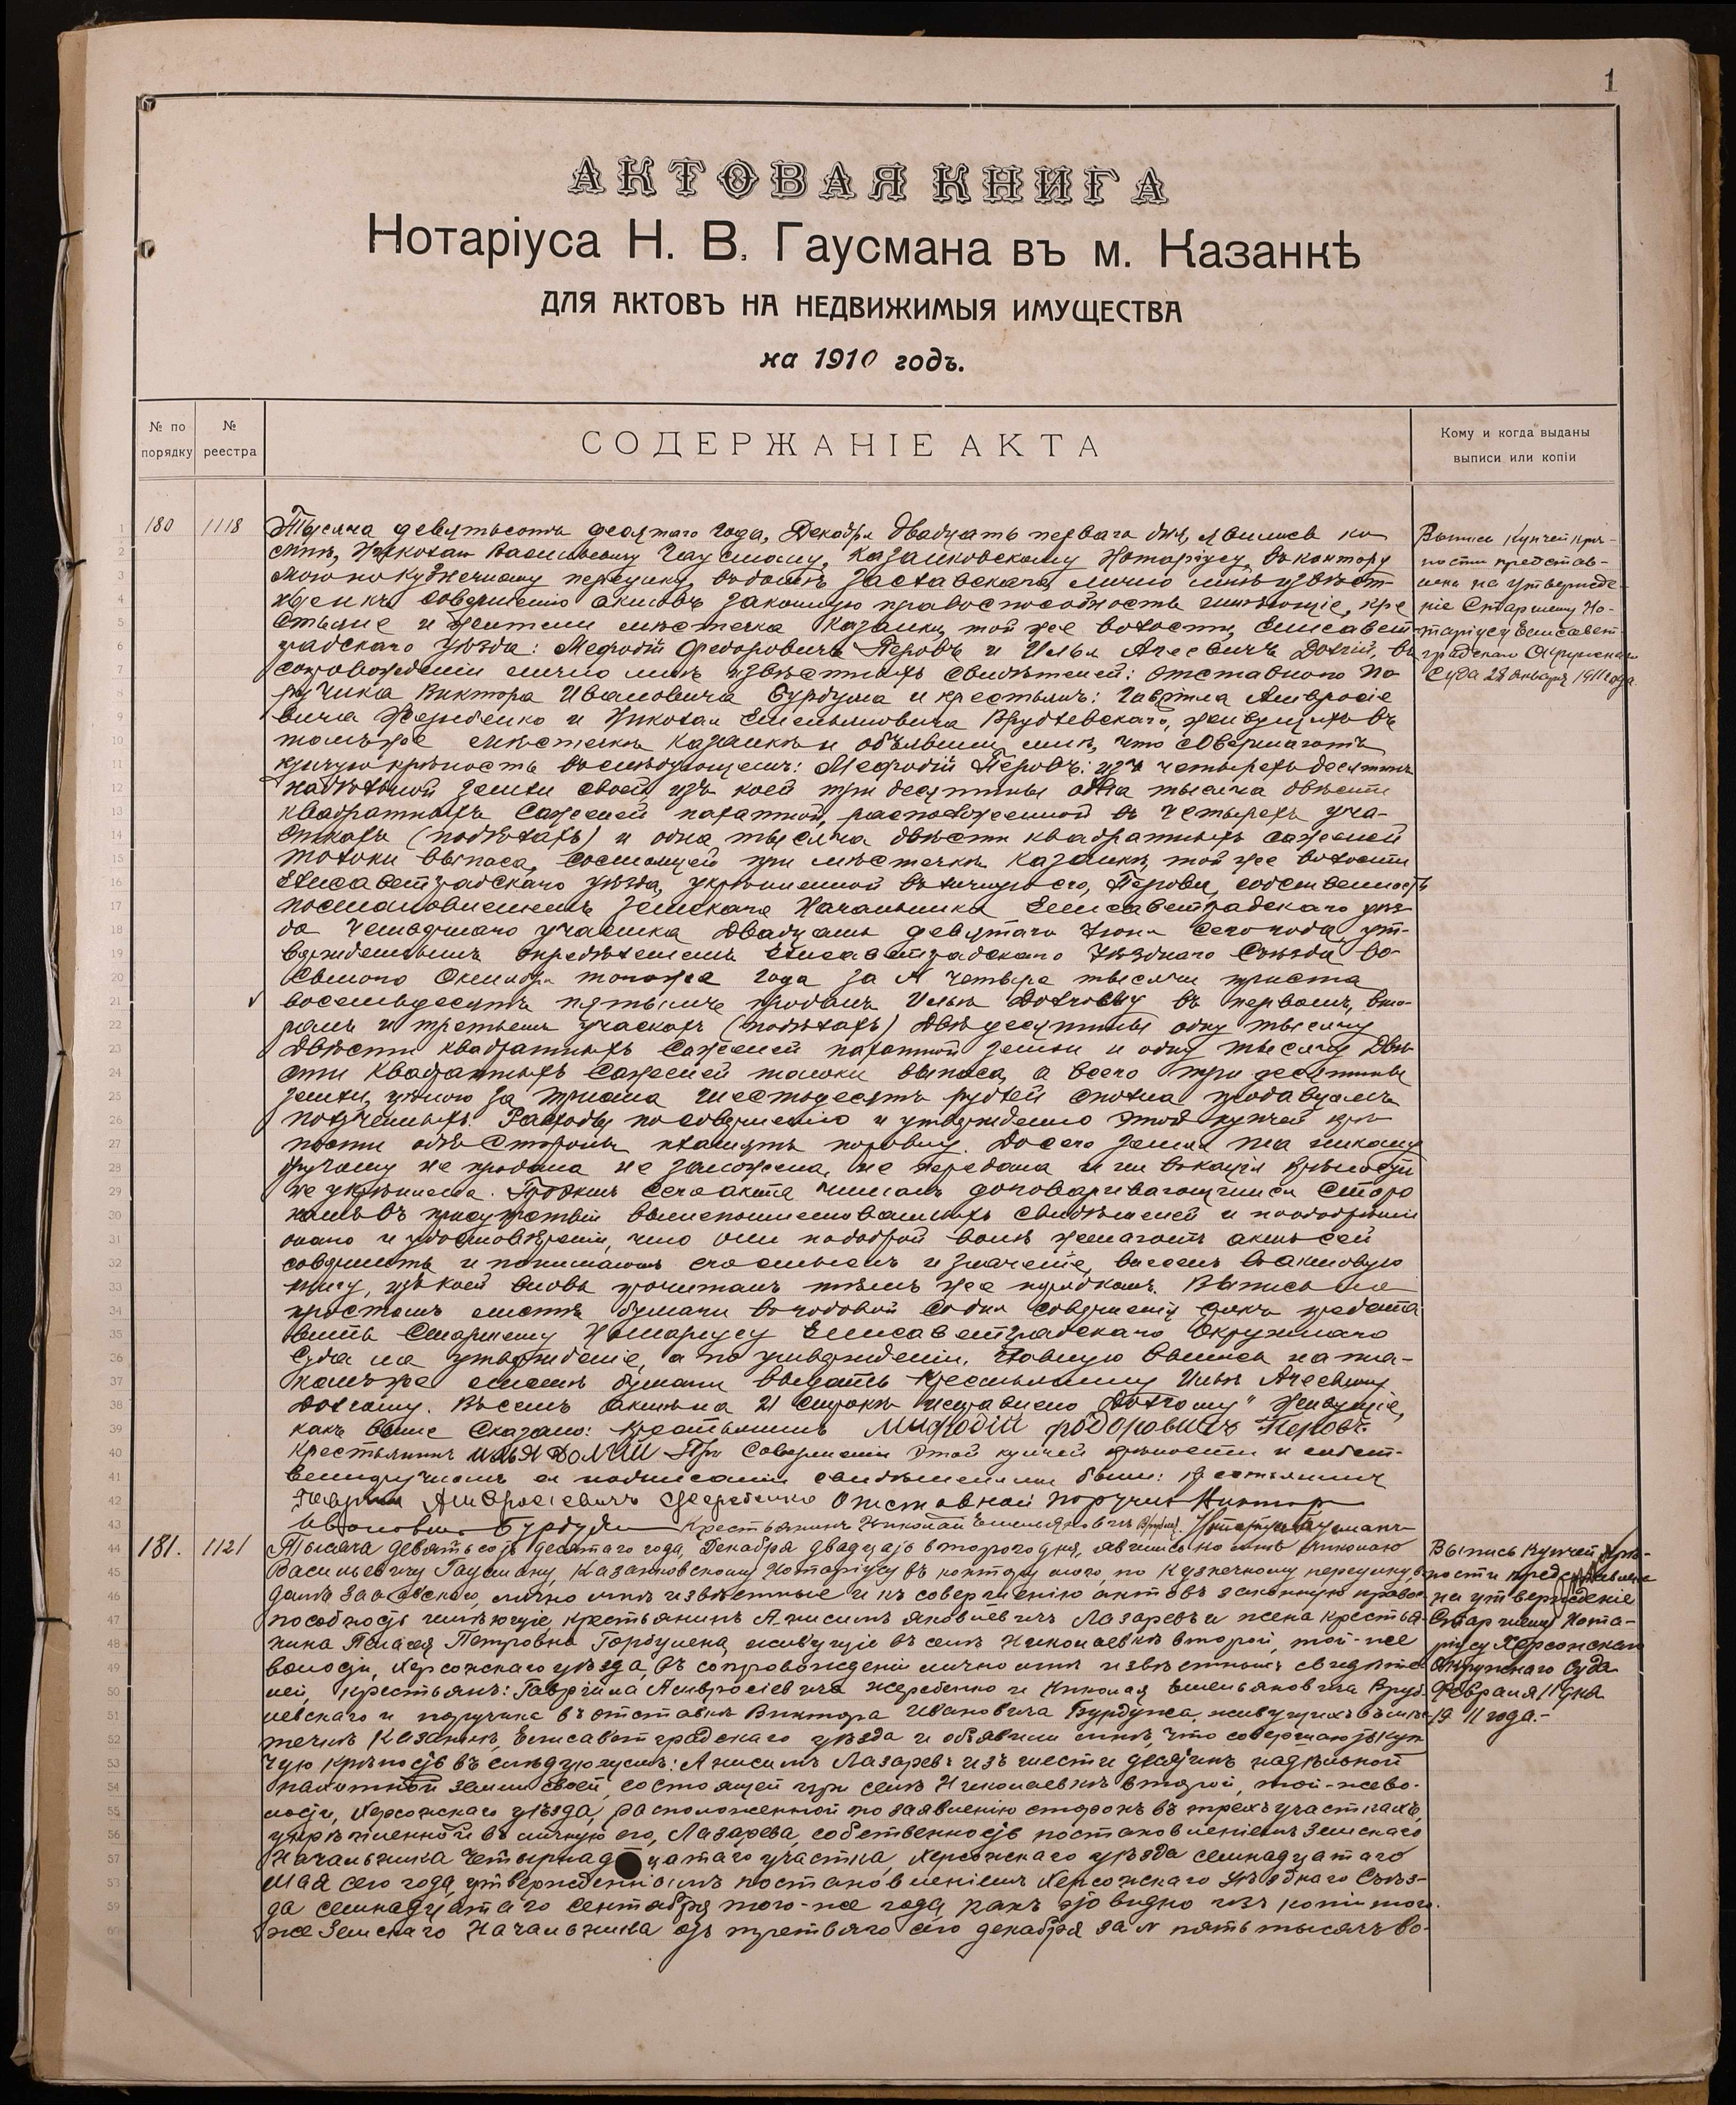 1
АКТОВАЯ КНИГА
Нотаріуса Н. В. Гаусмана въ м. Казанкѣ
ДЛЯ АКТОВЪ НА НЕДВИЖИМЫЯ ИМУЩЕСТВА
на 1910 годъ.
№ по порядку
№ реестра
СОДЕРЖАНІЕ АКТА
Кому и когда выданы
выписи или копіи
180 1118
Тысяча девятьсотъ десятаго года, Декабря двадцать перваго дня, явились ко
мнѣ, Николаю Васильевичу Гаусману, Казанковскому Нотаріусу, въ контору
мою по Кузнечному переулку, въ домѣ Заславскаго, лично мнѣ извѣст-
ные и къ совершенію актовъ законную правоспособность имѣющіе, кре
стьяне и жители мѣстечка Казанки, той же волости, Елисавет-
градскаго уѣзда: Мефодій Федоровичъ Перовъ и Илья Агеевичъ Долгій, въ
сопровожденіи лично мнѣ извѣстныхъ свидѣтелей: отставного По-
ручика Виктора Ивановича Бурдуна и крестьянъ: Гавріила Амвросіе
вича Жеребенко и Николая Емельяновича Врублевскаго, живущихъ въ
томъ же мѣстечкѣ Казанкѣ и объявили мнѣ, что совершаютъ
купчую крѣпость въ слѣдующемъ: Мефодій Перовъ: изъ четырехъ десятинъ
надѣльной земли своей изъ коей три десятины одна тысяча двѣсти
квадратныхъ саженей пахатной, расположенной въ четырехъ уча-
сткахъ (подѣлахъ) и одна тысяча двѣсти квадратныхъ саженей
толоки выпаса, состоящей при мѣстечкѣ Казанкѣ, той же волости
Елисаветградскаго уѣзда, укрѣпленной въ личную его, Перова, собственность
постановленіемъ Земскаго Начальника Елисаветградскаго уѣз-
да Четвертаго участка двадцать девятаго Іюня сего года, ут-
вержденнымъ опредѣленіемъ Елисаветградскаго Уѣзднаго Съѣзда во-
сьмого Октября того же года за № четыре тысячи триста
восемьдесятъ пятымъ продалъ Ильѣ Долгому въ первомъ, вто-
ромъ и третьемъ участкахъ (подѣлахъ) двѣ десятины одну тысячу
двѣсти квадратныхъ саженей пахатной земли и одну тысячу двѣ-
сти квадратныхъ саженей толоки выпаса, а всего три десятины
земли, цѣною за триста шестьдесятъ рублей сполна продавцомъ
полученныхъ. Расходы по совершенію и утвержденію этой купчей крѣ-
пости обѣ стороны платятъ поровну. До сего земля та никому
другому не продана не заложена, не передана и ни въ какія крѣпости
не укрѣплена. Проектъ сего акта читанъ договаривающимся сторо
намъ въ присутствіи вышепоименованныхъ свидѣтелей и по одобреніи
онаго и удостовѣреніи, что они по доброй волѣ желаютъ актъ сей
совершить и понимаютъ его смыслъ и значеніе, внесенъ въ актовую
книгу, изъ коей вновь прочитанъ тѣмъ же порядкомъ. Выпись на
простомъ листѣ бумаги въ годовой со дня совершенія срокъ предста
вить Старшему Нотаріусу Елисаветградскаго Окружнаго
Суда на утвержденіе, а по утвержденіи, главную выпись на та-
комъ же листѣ бумаги выдать крестьянину Ильѣ Агеевичу
Долгому. Въ семъ актѣ на 21 строкѣ исправлено „Долгому" Живущіе,
какъ выше сказано: крестьянинъ Мифодій Фодоровичъ Перовъ
Крестьянинъ ИлЬЯ ДолГій При совершеніи этой купчей крѣпости и собст-
венноручномъ ея подписаніи свидѣтелями были: Крестьянинъ
Гавріилъ Амвросіевичъ Жеребенко Отставной Поручикъ Викторъ
Ивановичъ Бурдунъ Крестьянинъ Николай Емельяновичъ Нотаріусъ Гаусманъ
Выпись Купчей крѣ-
пости представ-
лена на утвержде-
ніе Старшему Но-
таріусу Елисавет-
градскаго Окружнаго
Суда 28 Января 1911 года.
181. 1121
Тысяча девятьсотъ десятаго года, Декабря двадцать второго дня, явились ко мнѣ Николаю
Васильевичу Гаусману, Казанковскому Нотаріусу въ контору мою, по Кузнечному переулку въ
домѣ Заславскаго, лично мнѣ извѣстные и къ совершенію актовъ законную правос
пособность имѣющіе, крестьянинъ Анисимъ Яковлевичъ Лазаревъ и жена крестья-
нина Пелагея Петровна Горбулена, живущіе въ селѣ Николаевкѣ второй, той-же
волости, Херсонскаго уѣзда, въ сопровожденіи лично мнѣ извѣстныхъ свидѣте-
лей, крестьянъ: Гавріила Амвросіевича Жеребенко и Николая Емельяновича Вруб-
левскаго и поручика въ отставкѣ Виктора Ивановича Бурдуна, живущихъ въ мѣс-
течкѣ Казанкѣ, Елисаветградскаго уѣзда и объявили мнѣ, что совершаютъ куп
чую крѣпость въ слѣдующемъ: Анисимъ Лазаревъ изъ шести десятинъ надѣльной
пахотной земли своей, состоящей при селѣ Николаевкѣ второй, той-же во-
лости, Херсонскаго уѣзда, расположенной по заявленію сторонъ въ трехъ участкахъ,
укрѣпленной въ личную его, Лазарева, собственность постановленіемъ Земскаго
Начальника Четырнадцатаго участка, Херсонскаго уѣзда семнадцатаго
Мая сего года, утвержденнымъ постановленіемъ Херсонскаго Уѣзднаго Съѣз-
да семнадцатаго Сентября того-же года, какъ это видно изъ копіи того-
же Земскаго Начальника отъ третьяго сего декабря за № пять тысячъ во-
Выпись Купчей крѣ-
пости представлена
на утвержденіе
Старшему Нота-
ріусу Херсонскаго
Окружнаго Суда
Февраля 11 дня
1911 года.-